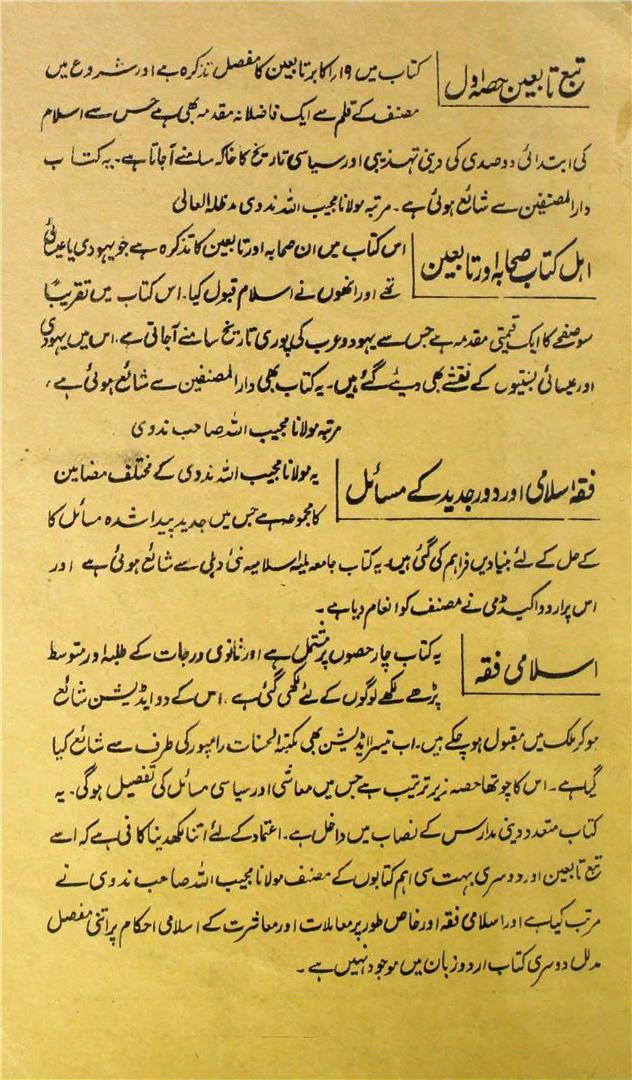 تبع تابعین حصہ اول
کتاب میں ۱۹/ اکابر تابعین کا مفصل تذکرہ ہے اور شروع میں
مصنف کے قلم سے ایک فاضلانہ مقدمہ بھی ہے جس سے اسلام
کی ابتدائی دو صدی کی دینی تہذیبی اور سیاسی تاریخ کا خاکہ سامنے آجاتا ہے۔ یہ کتاب
دارالمصنفین سے شائع ہوئی ہے۔ مرتبہ مولانا مجیب اللہ ندوی مدظلہ العالی
اہل کتاب صحابہ اور تابعین
اس کتاب میں ان صحابہ اور تابعین کا تذکرہ ہے جو یہودی یا عیسائی
تھے اور انھوں نے اسلام قبول کیا۔ اس کتاب میں تقریباً
سو صفحے کا ایک قیمتی مقدمہ ہے جس سے یہود و عرب کی پوری تاریخ سامنے آجاتی ہے، اس میں یہودی
اور عیسائی بستیوں کے نقشے بھی دیئے گئے ہیں۔ یہ کتاب بھی دارالمصنفین سے شائع ہوئی ہے،
مرتبہ مولانا مجیب اللہ صاحب ندوی
فقہ اسلامی اور دور جدید کے مسائل
یہ مولانا مجیب اللہ ندوی کے مختلف مضامین
کا مجموعہ ہے جس میں جدید پیدا شدہ مسائل کا
کے حل کے لئے بنیادیں فراہم کی گئی ہیں۔ یہ کتاب جامعہ ملیہ اسلامیہ نئی دہلی سے شائع ہوئی ہے اور
اس پر اردو اکیڈمی نے مصنف کو انعام دیا ہے۔
اسلامی فقہ
یہ کتاب چار حصوں پر مشتمل ہے اور ثانوی درجات کے طلبہ اور متوسط
پڑھے لکھے لوگوں کے لئے لکھی گئی ہے، اس کے دو ایڈیشن شائع
ہو کر ملک میں مقبول ہو چکے ہیں۔ اب تیسرا ایڈیشن بھی مکتبہ الحسنات رامپور کی طرف سے شائع کیا
گیا ہے۔ اس کا چوتھا حصہ زیر ترتیب ہے جس میں معاشی اور سیاسی مسائل کی تفصیل ہوگی۔ یہ
کتاب متعدد دینی مدارس کے نصاب میں داخل ہے۔ اعتماد کے لئے اتنا لکھ دینا کافی ہے کہ اسے
تبع تابعین اور دوسری بہت سی اہم کتابوں کے مصنف مولانا مجیب اللہ صاحب ندوی نے
مرتب کیا ہے اور اسلامی فقہ اور خاص طور پر معاملات اور معاشرت کے اسلامی احکام پر اتنی مفصل
مدلل دوسری کتاب اردو زبان میں موجود نہیں ہے۔